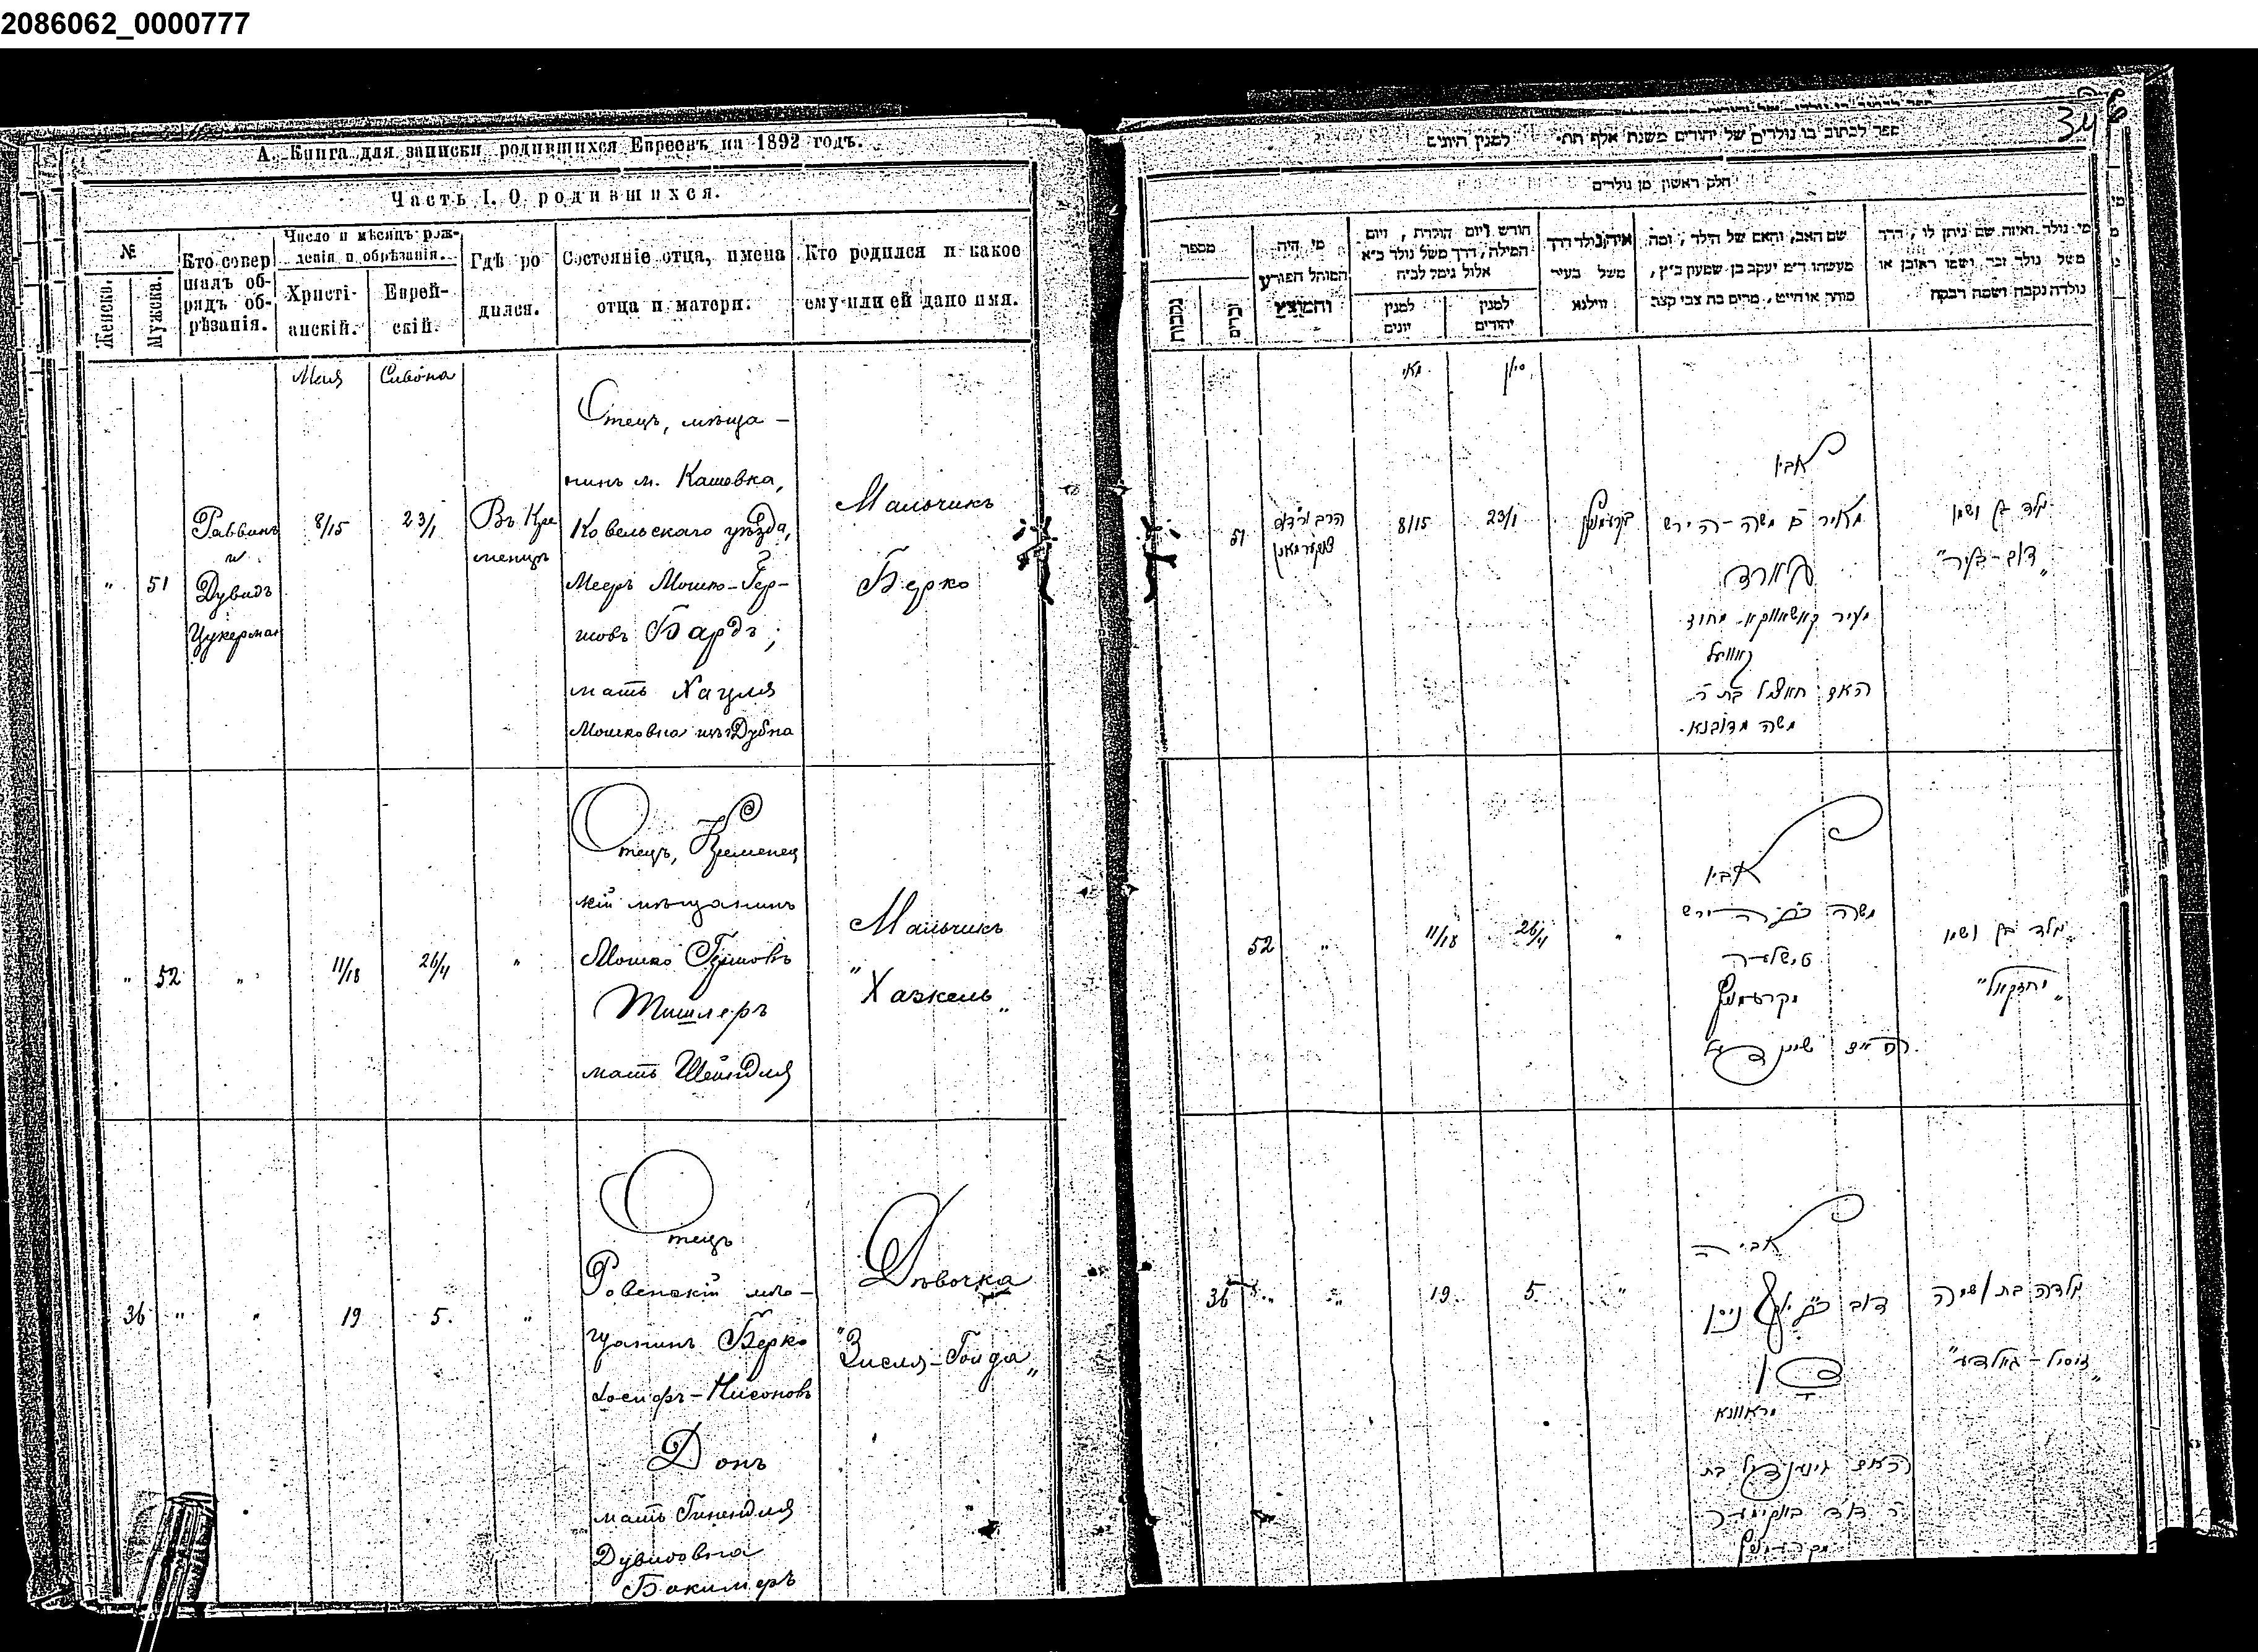 2086062_0000777
А. Книга для записки родившихся Евреевъ на 1892 годъ.
Часть I. О родившихся.
№
Женска.
Мужска.
Кто совер
шалъ об-
рядъ об-
рѣзанія.
Число и мѣсяцъ рож-
денія и обрѣзанія.
Христі-
анскій.
Еврей-
скій.
Гдѣ ро
дился.
Состояніе отца, имена
отца и матери.
Кто родился и какое
ему или ей дано имя.
Мая
Сивона
"
51
Раввинъ
и
Дувидъ
Цукерман
8/15
23/1
Въ Кре
менцѣ
Отецъ, мѣща-
нинъ м. Кашовка,
Ковельскаго уѣзда,
Мееръ Мошко-Гер-
шовъ Бардъ;
мать Хацля
Мошковна изъ Дубна
Мальчикъ
Берко
"
52
"
11/18
26/4
"
Отецъ, Кременец
кій мѣщанинъ
Мошко Гершовъ
Тишлеръ
мать Шейндля
Мальчикъ
"Хаскель"
36
"
"
19
5.
"
Отецъ
Ровенскій мѣ-
щанинъ Берко
Іосифъ-Нисоновъ
Донъ
мать Гинендля
Дувидовна
Бакимеръ
Дѣвочка
"Зисля-Голда"
ספר לכתוב בו נולדים של יהודים משנת אלף תת׳ למנין היונים
חלק ראשון מן נולדים
מספר
נקבות
זכרים
מי היה
המוהל הפורע
והמוצץ
חודש ויום הולדת, ויום
המילה, דרך משל נולד כ״א
אלול נימל לכ״ח
למנין
יונים
למנין
יהודים
איה נולד דרך
משל בעיר
ווילנא
שם האב, והאם של הילד, ומה
מעשהו ד״מ יעקב בן שמעון כ״ץ,
סוחר או חייט, מרים בת צבי קצב
מי נולד ואיזה שם ניתן לו, דרך
משל נולד זכר ושמו ראובן או
נולדה נקבה ושמה רבקה
מאי
סיון
51
הרב ור׳ דוד
צוקערמאן
8/15
23/1
קרעמניץ
אביו
מאיר ב׳ משה-הירש
בארד
מעיר קאשאווקא מחוז
קאוועל
משה מדובנא.
נולד בן ושמו
52
"
11/18
26/4
"
אביו
משה ב״ר הירש
טישלער
מקרעמניץ
נולד בן ושמו
"יחזקאל"
36
"
"
19
5.
"
אביה
דוב ב״ר יוסף ניסן
דאן
מראוונא
ר׳ דוד באקימער
מקרעמניץ
נולדה בת ושמה
"זיסיל-גאלדע"